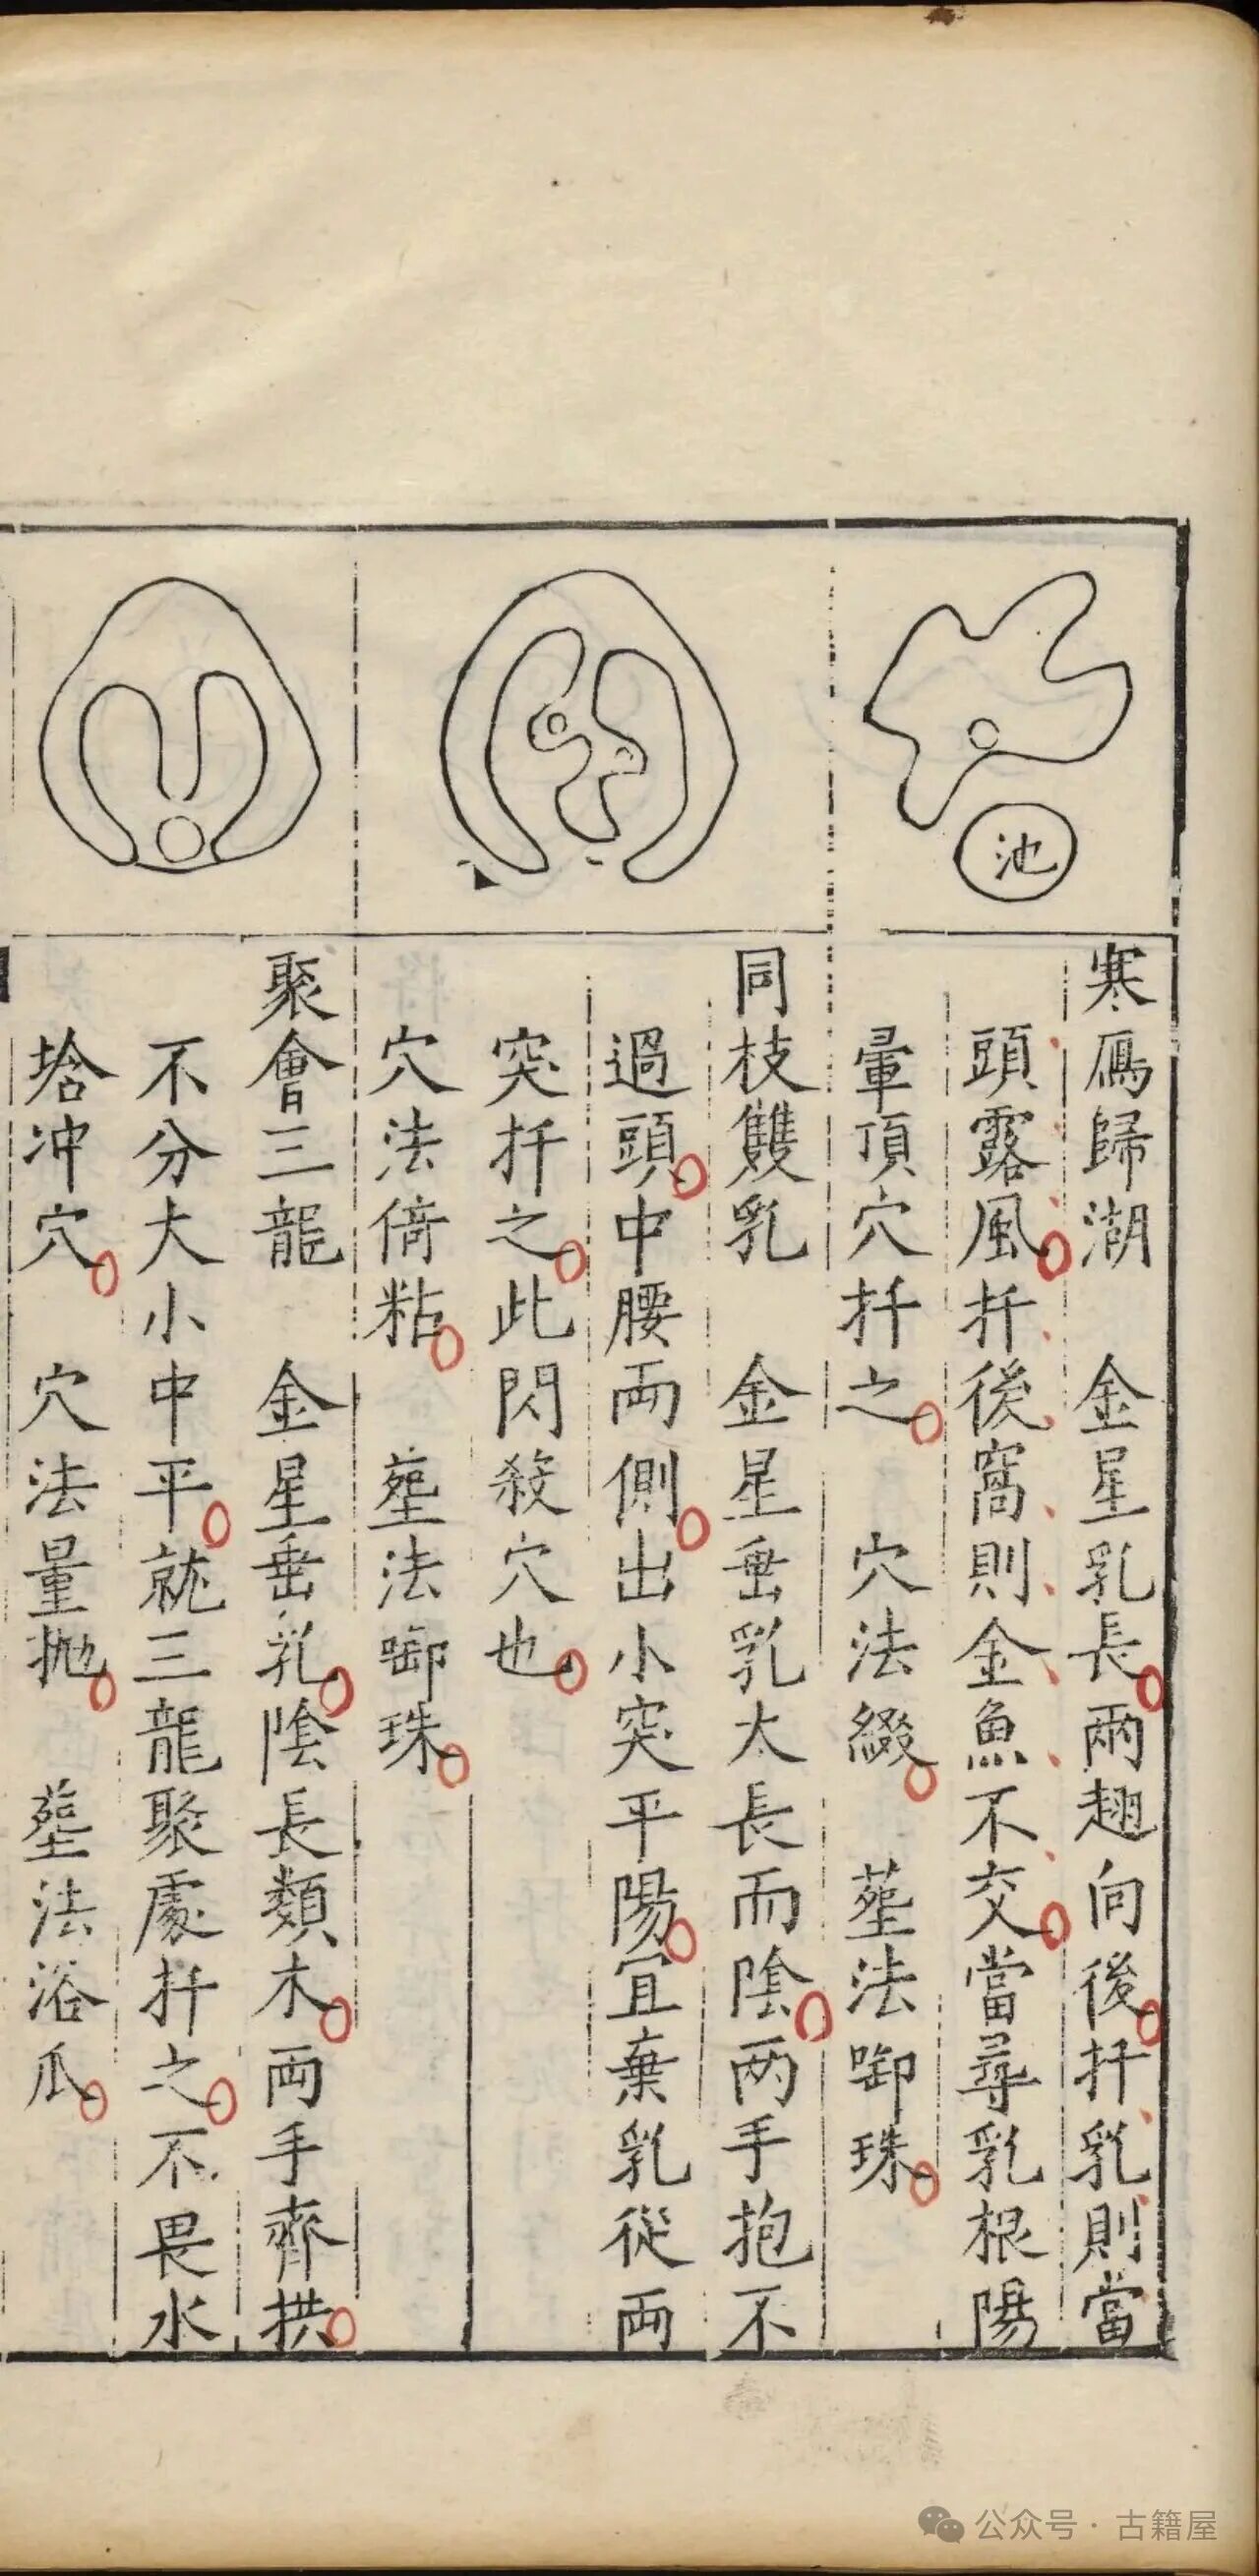 池
寒鴈歸湖　金星乳長兩翅向後扦乳則當
頭露風扦後窩則金魚不交當尋乳根陽
暈頂穴扦之　穴法綴　塟法啣珠
同枝雙乳　金星垂乳太長而陰两手抱不
過頭中腰両側出小突平陽宜棄乳從両
突扦之此閃殺穴也
穴法倚粘　塟法啣珠
聚會三龍　金星垂乳陰長類木両手齊拱
不分大小中平就三龍聚處扦之不畏水
冲穴　穴法量抛　塟法浴瓜
公众号 · 古籍屋